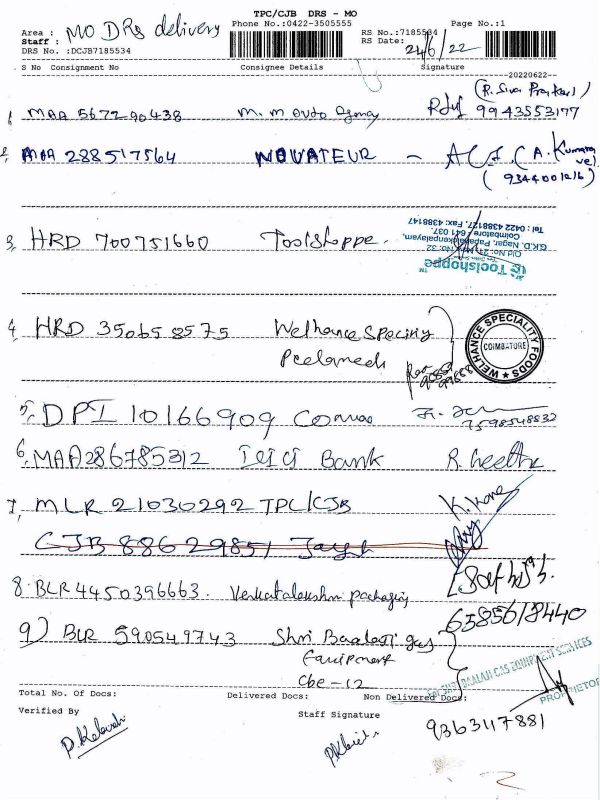 TPC/CJB DRS - MO
Area : MO DRS delivery
Phone No.:0422-3505555
Page No.:1
Staff :
RS No.:7185534
DRS No. :DCJB7185534
RS Date: 24/6/22
S No Consignment No Consignee Details Signature
--20220622--
1, MAA 567290438 M.M Auto Agency 9943553177
2, MAA 288517564 NOVATEUR - (A. Kumaravel)
(9344001216)
3, HRD 700751660 Toolshoppe.
Toolshoppe
Old No: 23, New No: 22,
G.K.D. Nagar, Papanaickenpalayam,
Coimbatore - 641 037.
Tel : 0422 4388127, Fax: 4388147
4, HRD 350658575 Welhance Speciality
Peelamedu
WELHANCE SPECIALITY FOODS
COIMBATORE
5, DPI 10166909 7598548832
6, MAA286785312 ICICI Bank R. Geetha
7, MLR 21030292 TPC/CJB
CJB 88629851
8. BLR 4450396663. Venkatalakshmi packaging
6385618440
9) BLR 590549743 Shri Baalaji gas
Equipment
Cbe-12
SHRI BAALAJI GAS EQUIPMENT SERVICES
PROPRIETOR
Total No. Of Docs: Delivered Docs: Non Delivered Docs:
Verified By Staff Signature
9363117881